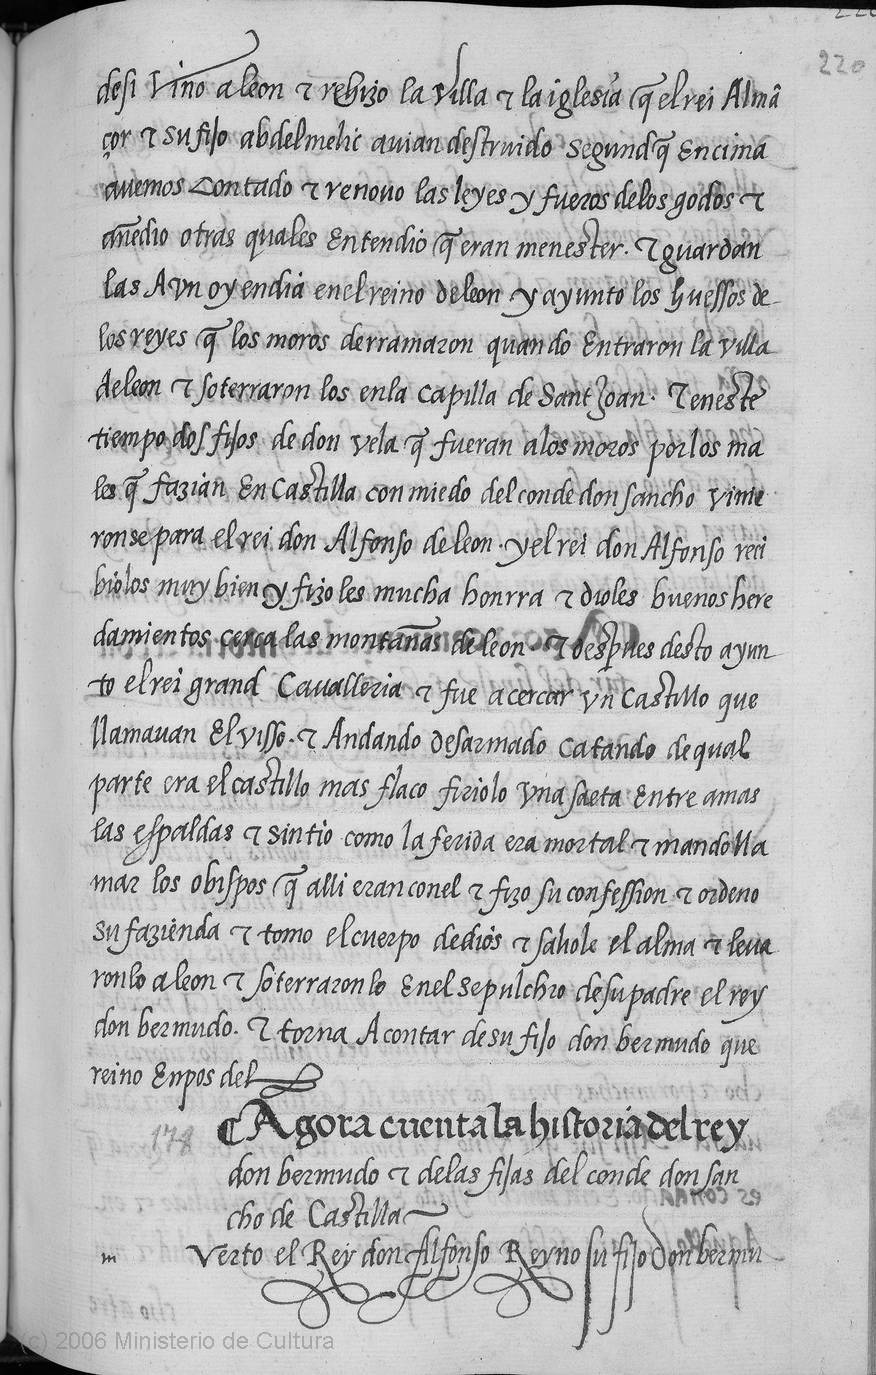 220
desi vino a leon τ rehizo la villa τ la iglesia q̃ el rei Almã
çor τ su fijo abdelmelic avian destruido segund q̃ encima
auemos contado τ renovo las leyes y fueros de los godos τ
añedio otras quales entendio q̃ eran menester. τ guardan
las Avn oy en dia en el reino de leon y ayunto los huessos de
los reyes q̃ los moros derramaron quando entraron la villa
de leon τ soterraron los en la capilla de Sant Joan. τ en este
tiempo dos fijos de don vela q̃ fueran a los moros por los ma
les q̃ fazian en Castilla con miedo del conde don sancho vinie
ronse para el rei don Alfonso de leon. y el rei don Alfonso reci
biolos muy bien y fizo les mucha honrra τ dioles buenos here
damientos cerca las montañas de leon. τ despues desto ayun
to el rei grand Cavalleria τ fue a cercar vn Castillo que
llamavan El visso. τ Andando desarmado catando de qual
parte era el castillo mas flaco firiolo vna saeta entre amas
las espaldas τ sintio como la ferida era mortal τ mando lla
mar los obispos q̃ alli eran con el τ fizo su confession τ ordeno
su fazienda τ tomo el cuerpo de dios τ saliole el alma τ leva
ronlo a leon τ soterraronlo en el sepulchro de su padre el rey
don bermudo. τ torna A contar de su fijo don bermudo que
reino enpos del
178
Agora cuenta la historia del rey
don bermudo τ de las fijas del conde don san
cho de Castilla
m
verto el Rey don Alfonso Reyno su fijo don bermu
(c) 2006 Ministerio de Cultura